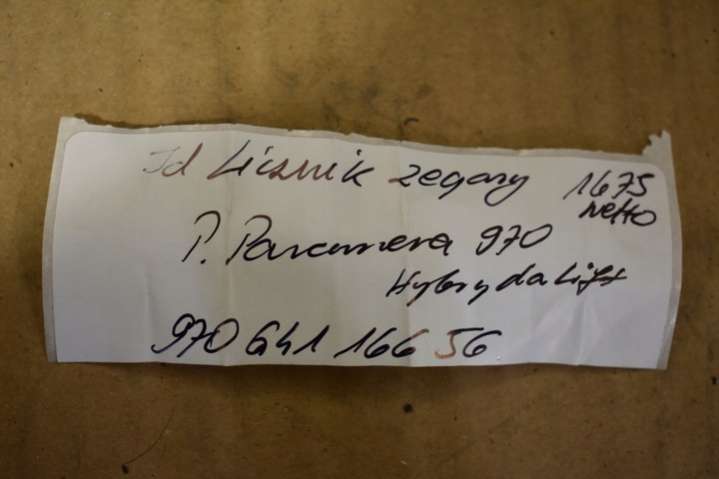 Id Licznik zegary 1675
netto
P. Panamera 970
Hybryda Lift
970 641 166 56